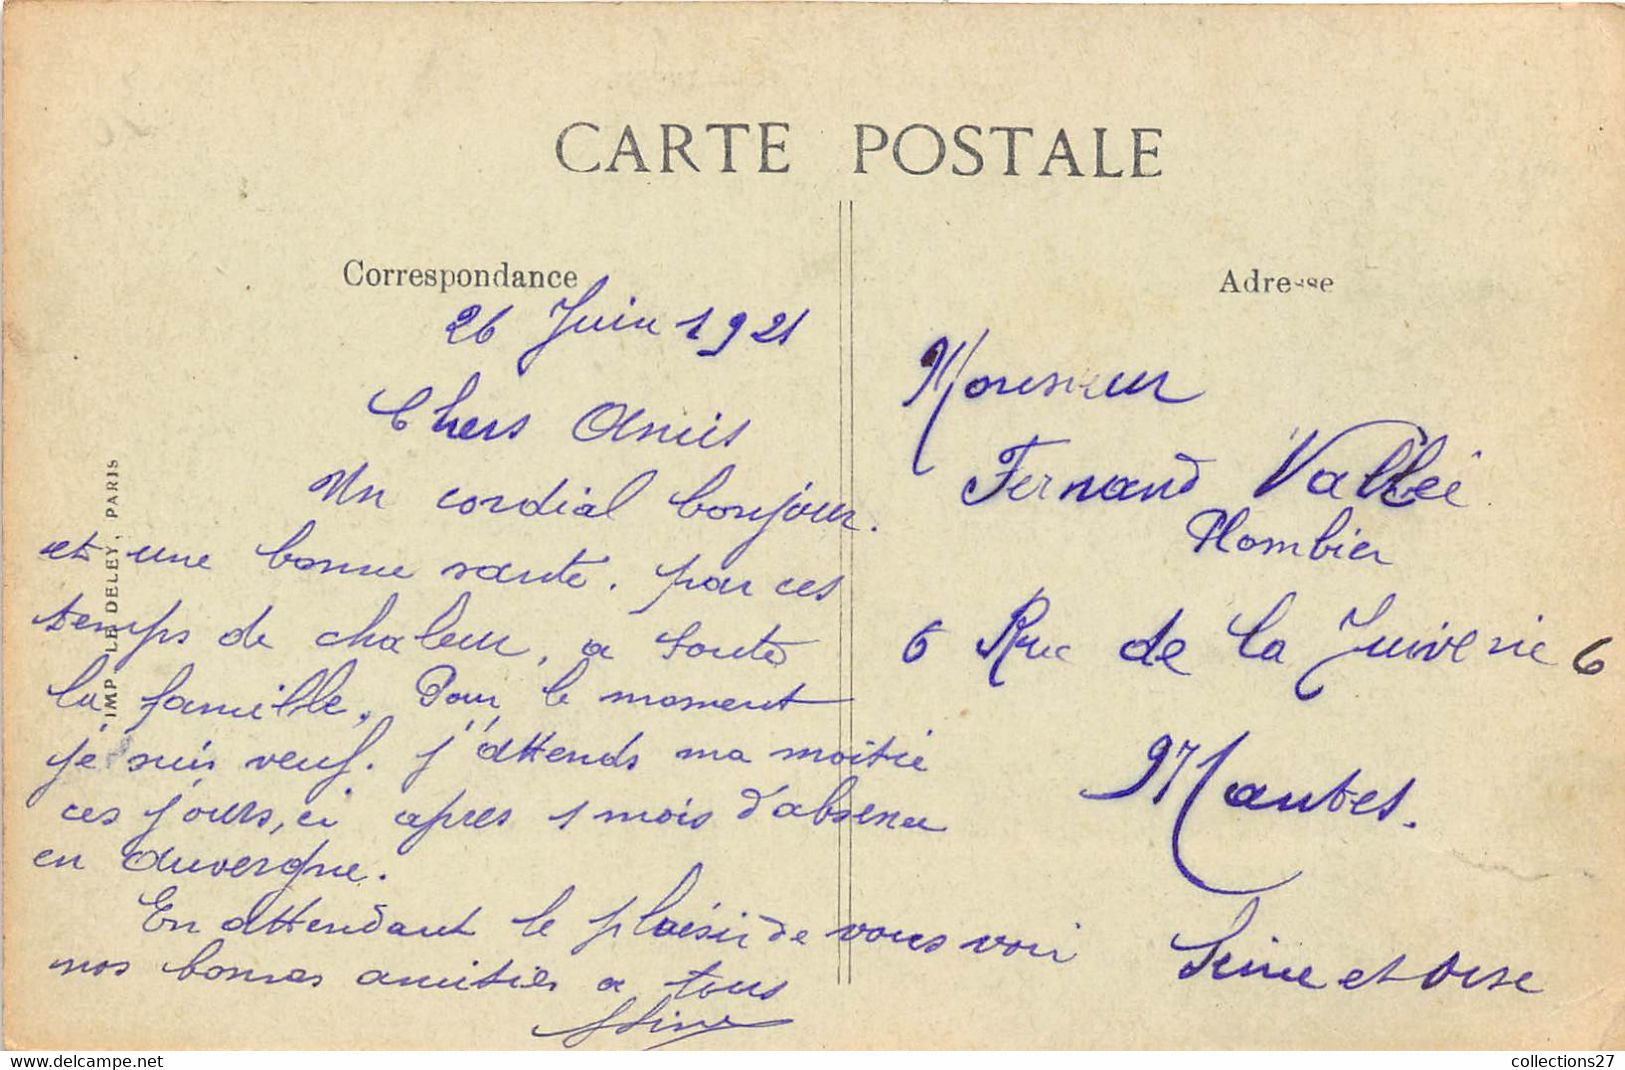 CARTE POSTALE
Correspondance
26 Juin 1921
Chers Amis
Un cordial bonjour.
et une bonne santé. par ces
temps de chaleur, a toute
la famille. Pour le moment
je suis veuf. j'attends ma moitié
ces jours, ci apres 1 mois d'absence
en Auvergne.
En attendant le plaisir de vous voir
nos bonnes amitiés a tous
IMP. LE DELEY, PARIS
Adresse
Monsieur
Fernand Vallée
Plombier
6 Rue de la Juiverie 6
Mantes.
Seine et Oise
collections27